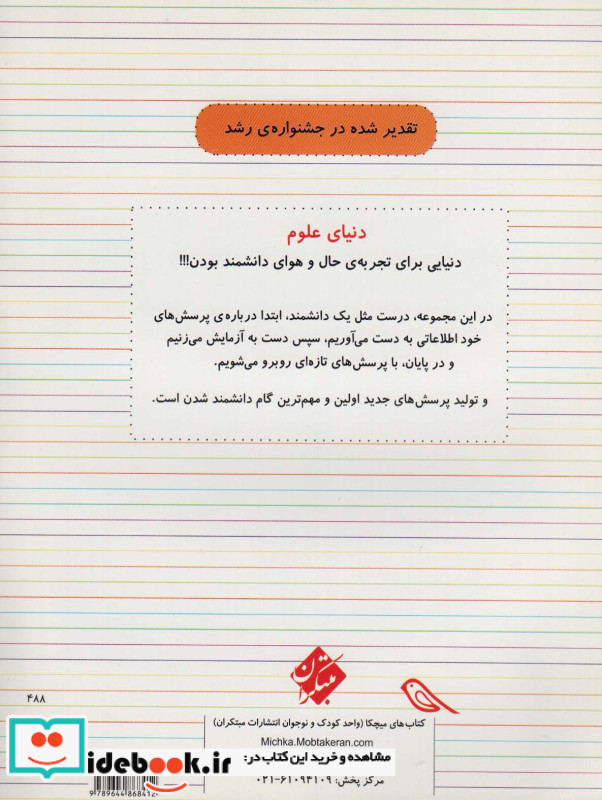 تقدیر شده در جشنواره‌ی رشد
دنیای علوم
دنیایی برای تجربه‌ی حال و هوای دانشمند بودن!!!
در این مجموعه، درست مثل یک دانشمند، ابتدا درباره‌ی پرسش‌های
خود اطلاعاتی به دست می‌آوریم، سپس دست به آزمایش می‌زنیم
و در پایان، با پرسش‌های تازه‌ای روبرو می‌شویم.
و تولید پرسش‌های جدید اولین و مهم‌ترین گام دانشمند شدن است.
مبتکران
۴۸۸
کتاب‌های میچکا (واحد کودک و نوجوان انتشارات مبتکران)
Michka.Mobtakeran.com
مشاهده و خرید این کتاب در:
idebook.ir
مرکز پخش: ۶۱۰۹۴۱۰۹-۰۲۱
9789644868412